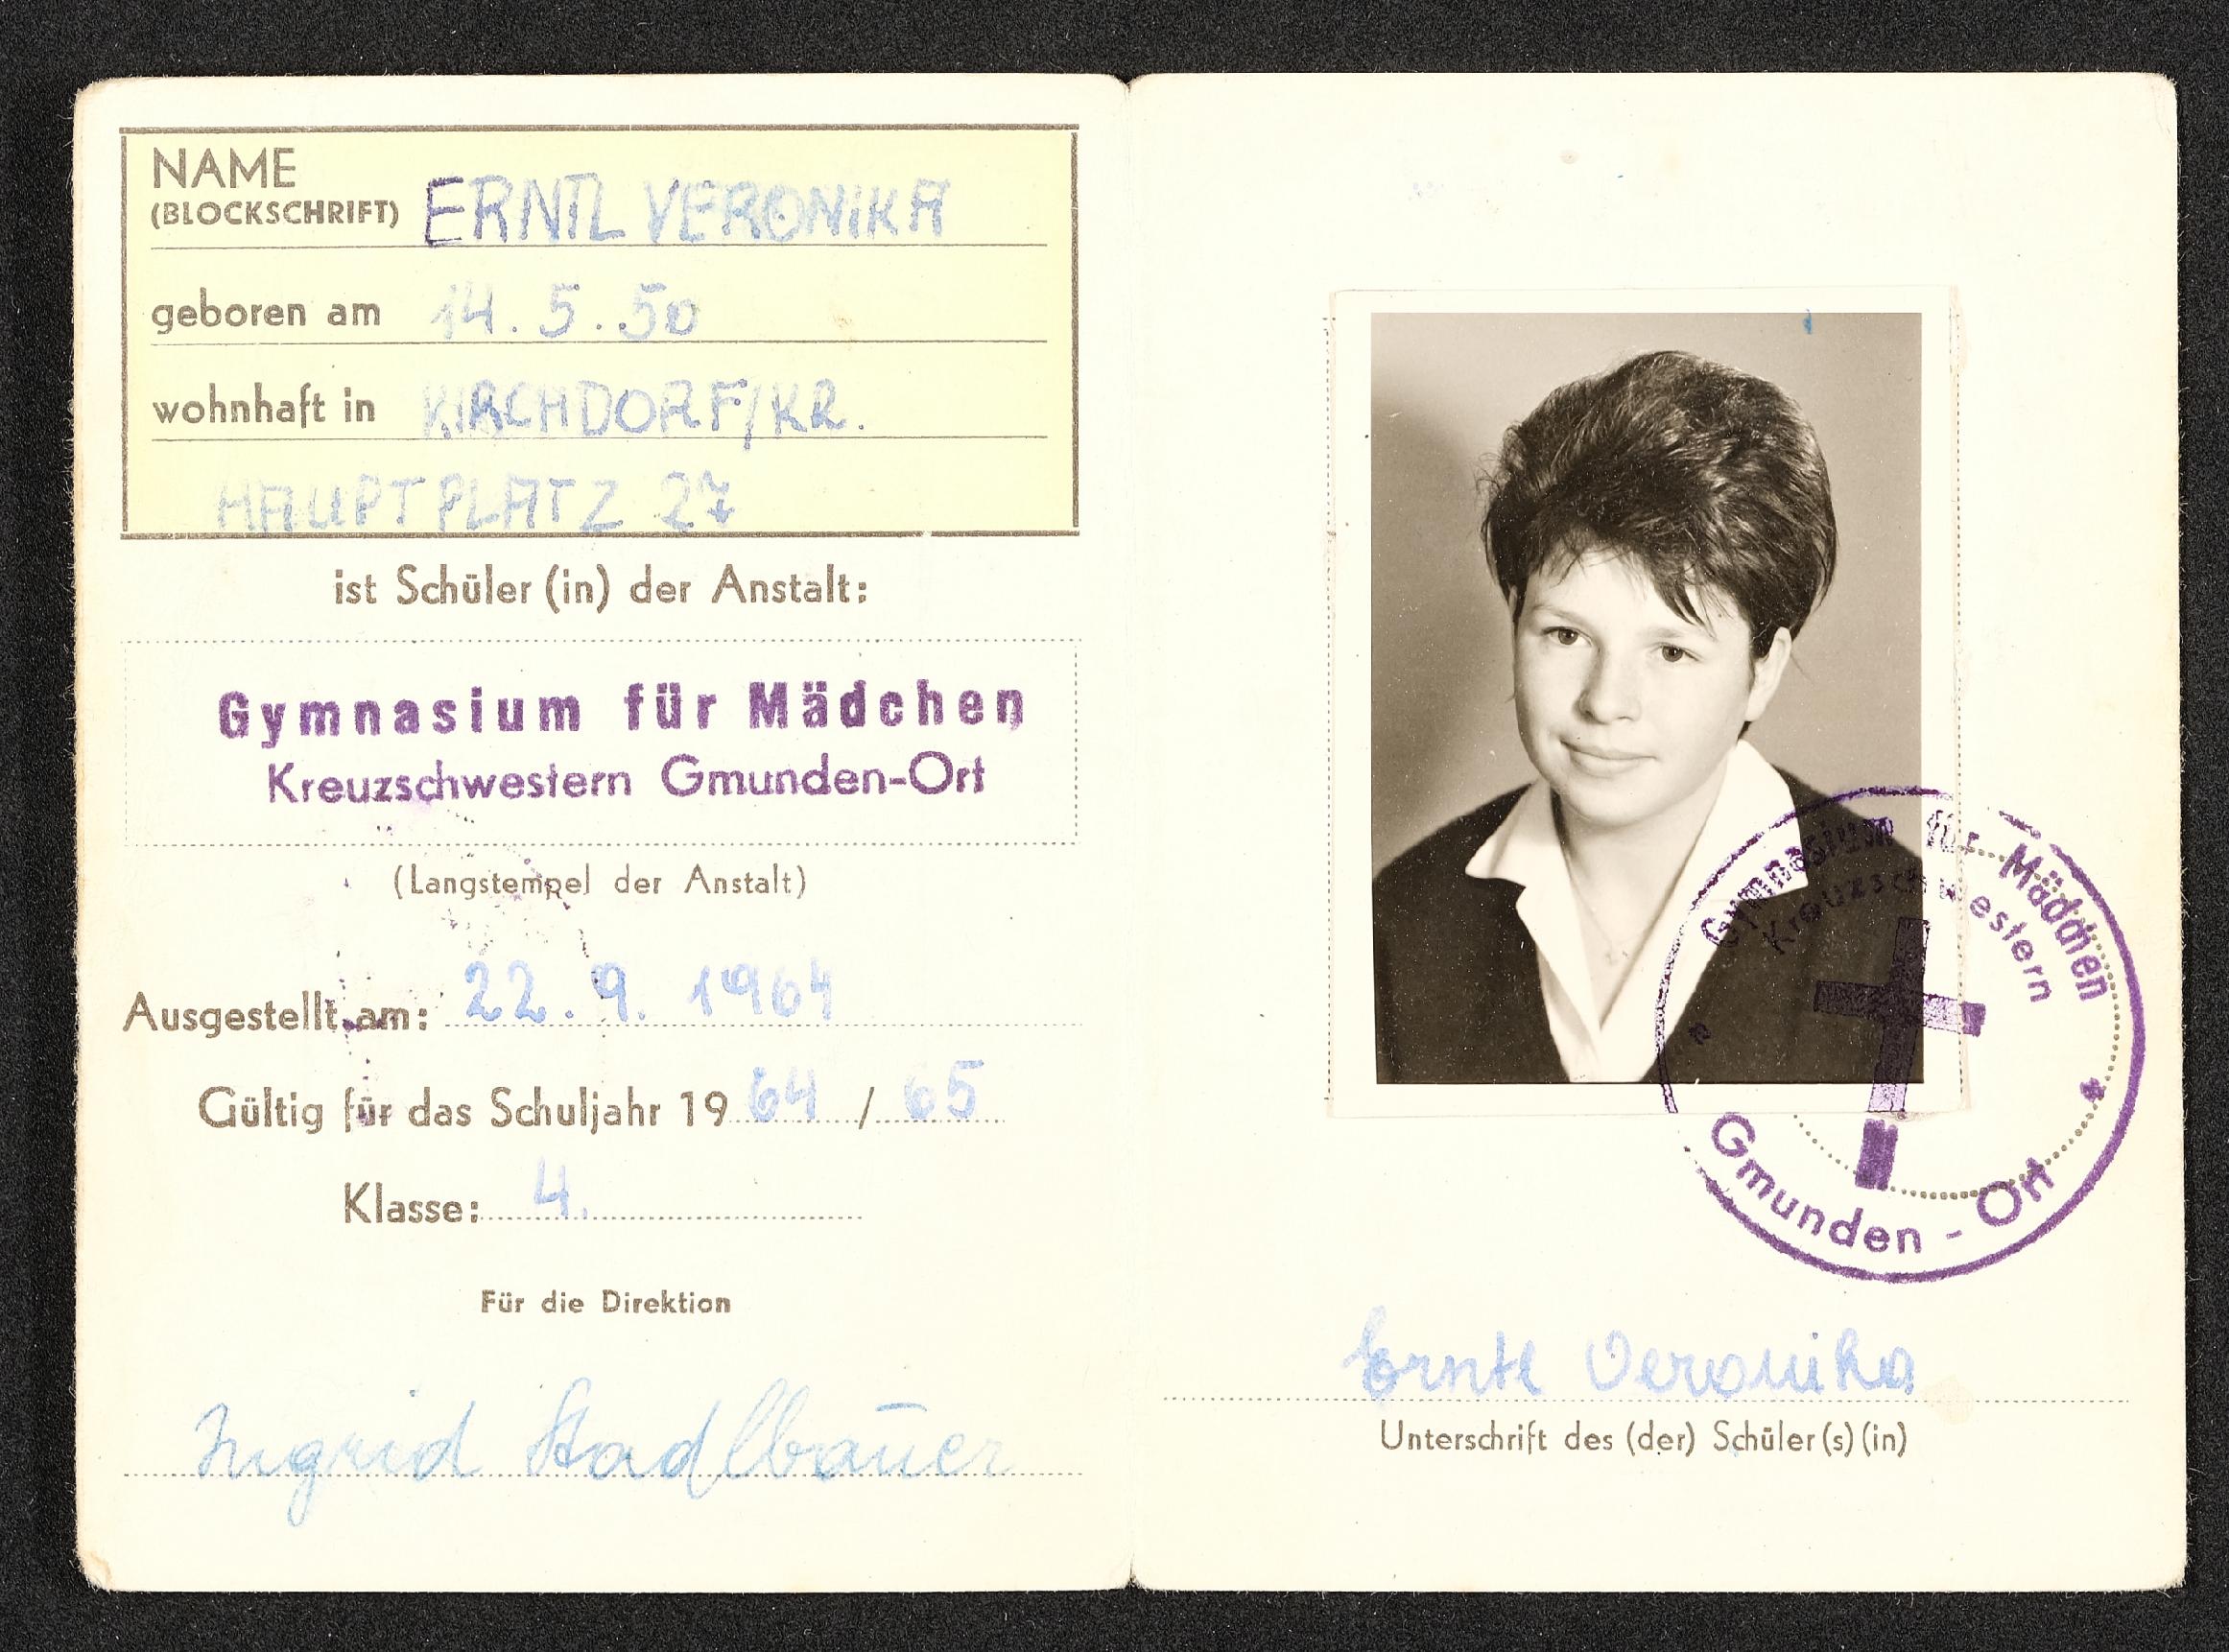 NAME
(BLOCKSCHRIFT) ERNTL VERONIKA
geboren am 14.5.50
wohnhaft in KIRCHDORF/KR.
HAUPTPLATZ 27
ist Schüler (in) der Anstalt:
Gymnasium für Mädchen
Kreuzschwestern Gmunden-Ort
(Langstempel der Anstalt)
Ausgestellt am: 22.9.1964
Gültig für das Schuljahr 19 64 / 65
Klasse: 4.
Für die Direktion
Ingrid Stadlbauer
Gymnasium für Mädchen
Kreuzschwestern
Gmunden - Ort
Erntl Veronika
Unterschrift des (der) Schüler(s) (in)